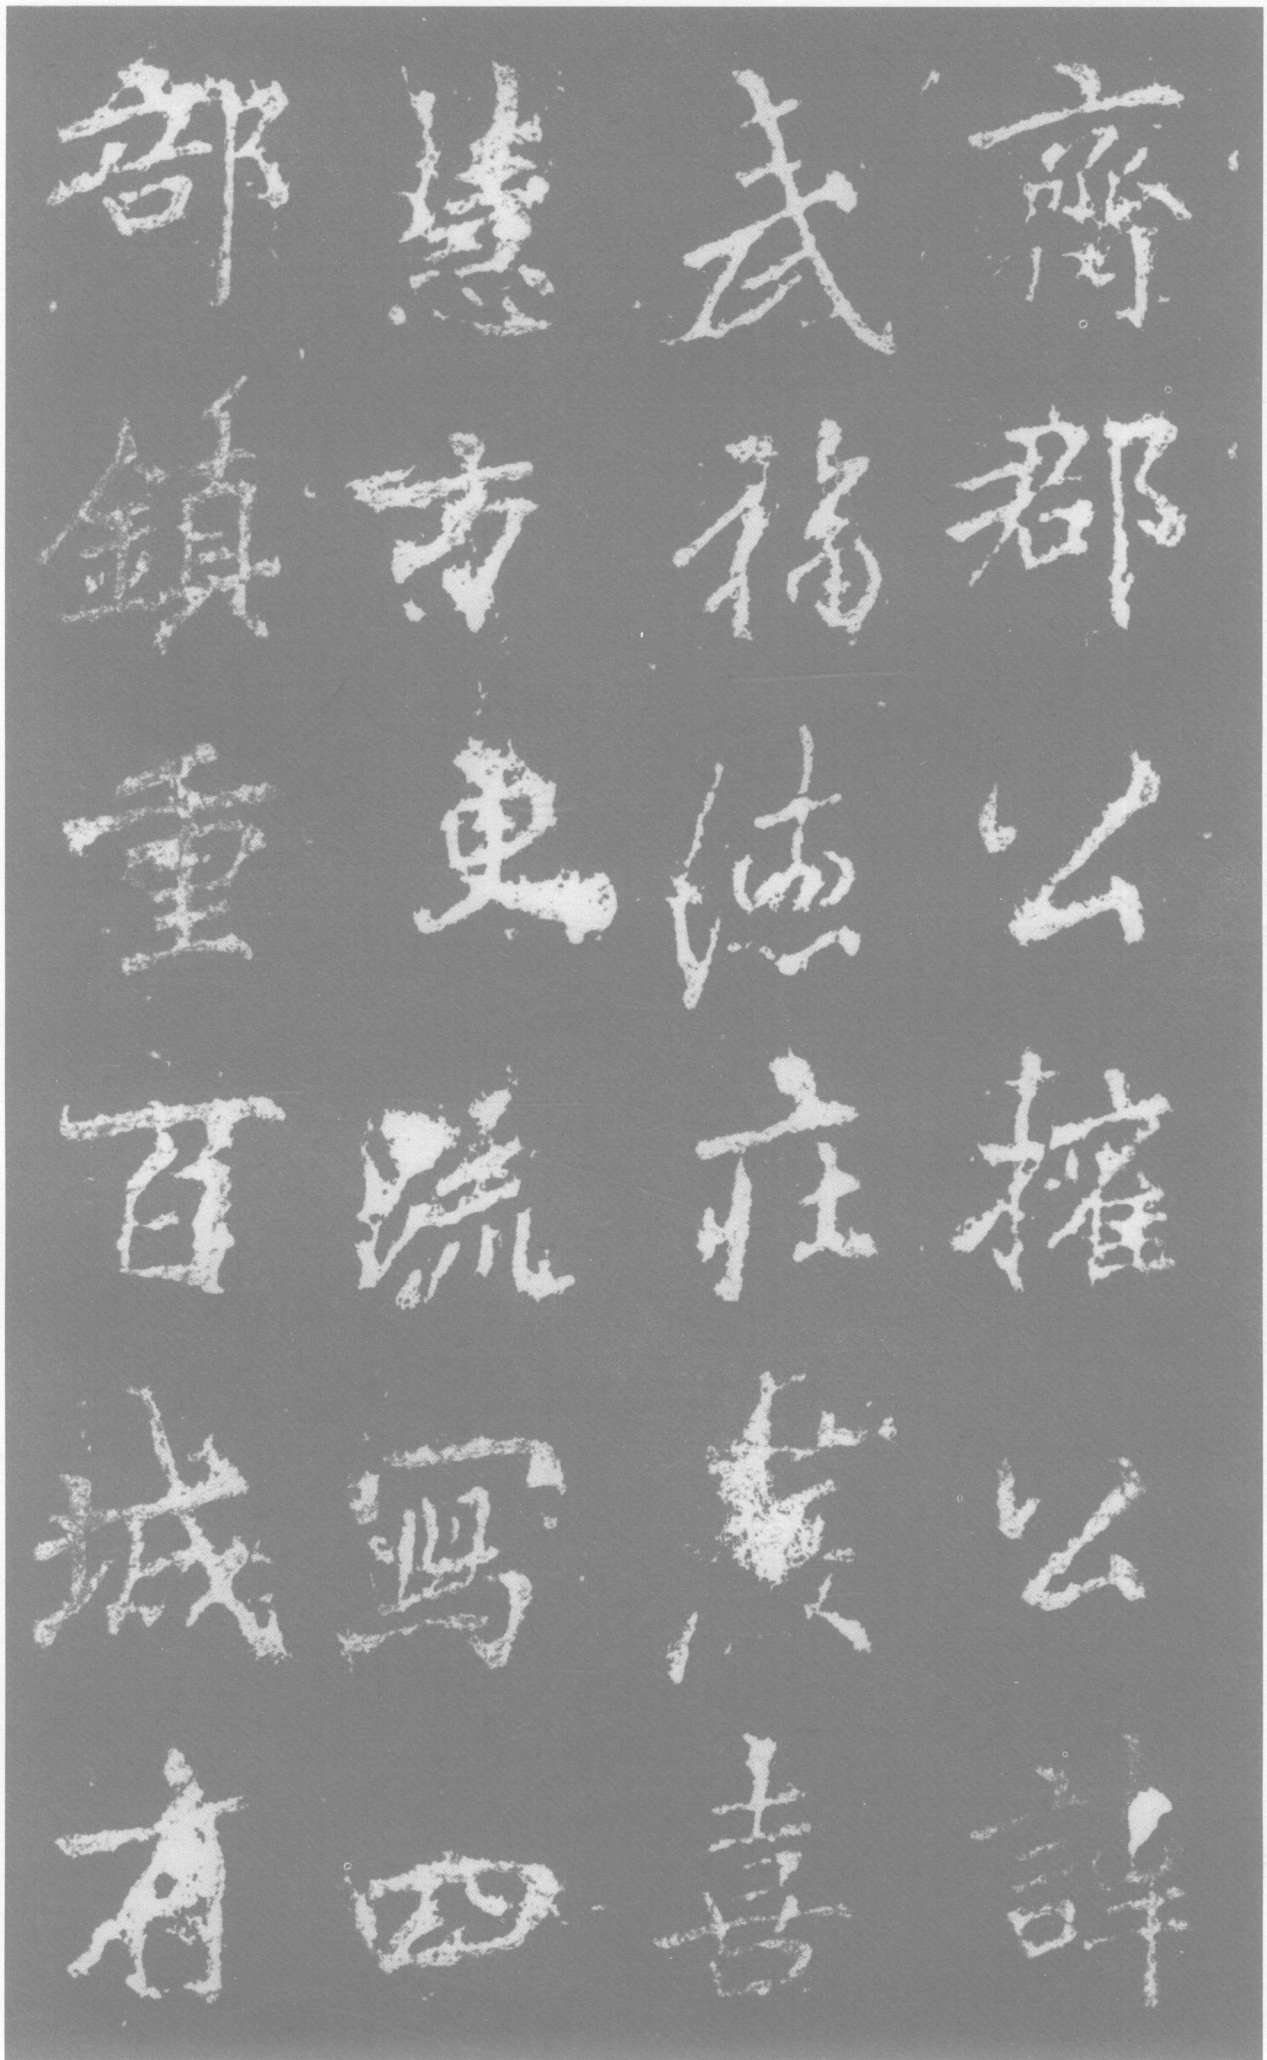 齊郡公權公諱
武福德莊嚴喜
慧方便疏寫四
部鎮重百城有